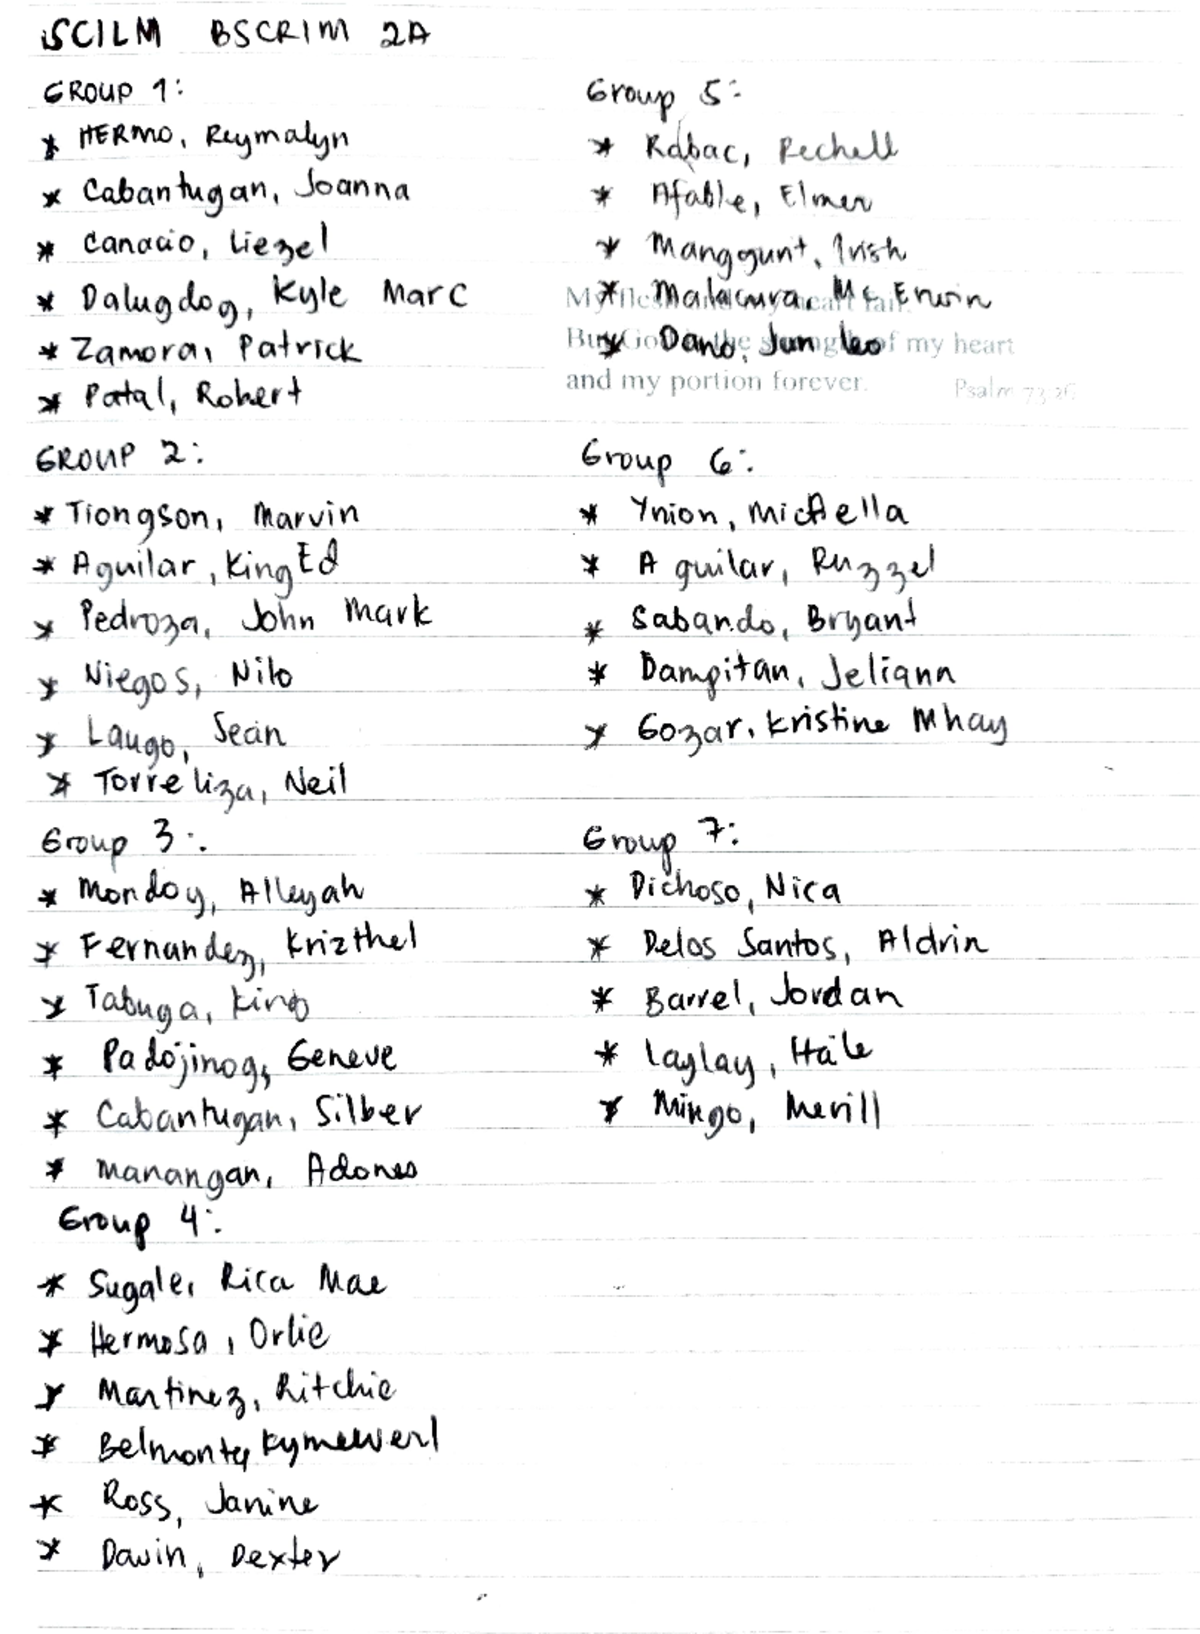 SCILM BSCRIM 2A
GROUP 1:
* HERMO, Reymalyn
* Cabantugan, Joanna
* Canacio, Liezel
* Dalugdog, Kyle Marc
* Zamora, Patrick
* Patal, Robert
GROUP 2:
* Tiongson, Marvin
* Aguilar, King Ed
* Pedroza, John Mark
* Niegos, Nilo
* Laugo, Sean
* Torreliza, Neil
Group 3:
* Mondoy, Alleyah
* Fernandez, Krizthel
* Tabuga, King
* Padojinog, Geneve
* Cabantugan, Silber
* Manangan, Adones
Group 4:
* Sugale, Rica Mae
* Hermosa, Orlie
* Martinez, Ritchie
* Belmonte,
* Ross, Janine
* Dawin, Dexter
Group 5:
* Rabac, Rechell
* Afable, Elmer
* Manggunt, Irish
* Erwin
* Dano, Jun leo
of my heart
and my portion forever. Psalm 73:26
Group 6:
* Ynion, Michella
* Aguilar, Ruzzel
* Sabando, Bryant
* Dampitan, Jeliann
* Gozar, Kristine Mhay
Group 7:
* Dichoso, Nica
* Delos Santos, Aldrin
* Barrel, Jordan
* Laylay, Haile
* Mingo, Merill